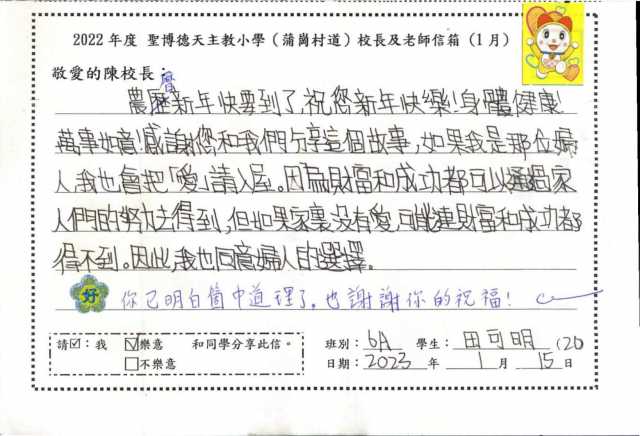 2022 年度 聖博德天主教小學（蒲崗村道）校長及老師信箱（1 月）
敬愛的陳校長
曆
農歷新年快要到了,祝您新年快樂!身體健康!
萬事如意!感謝您和我們分享這個故事,如果我是那位婦
人,我也會把「愛」請入屋。因為財富和成功都可以通過家
人們的努力得到,但如果家裏沒有愛,可能連財富和成功都
得不到。因此,我也同意婦人的選擇。
好 你已明白箇中道理了,也謝謝你的祝福!
請☑：我 ☑樂意 和同學分享此信。 班別：6A 學生：田可明 (20
□不樂意 日期：2023 年 1 月 15 日